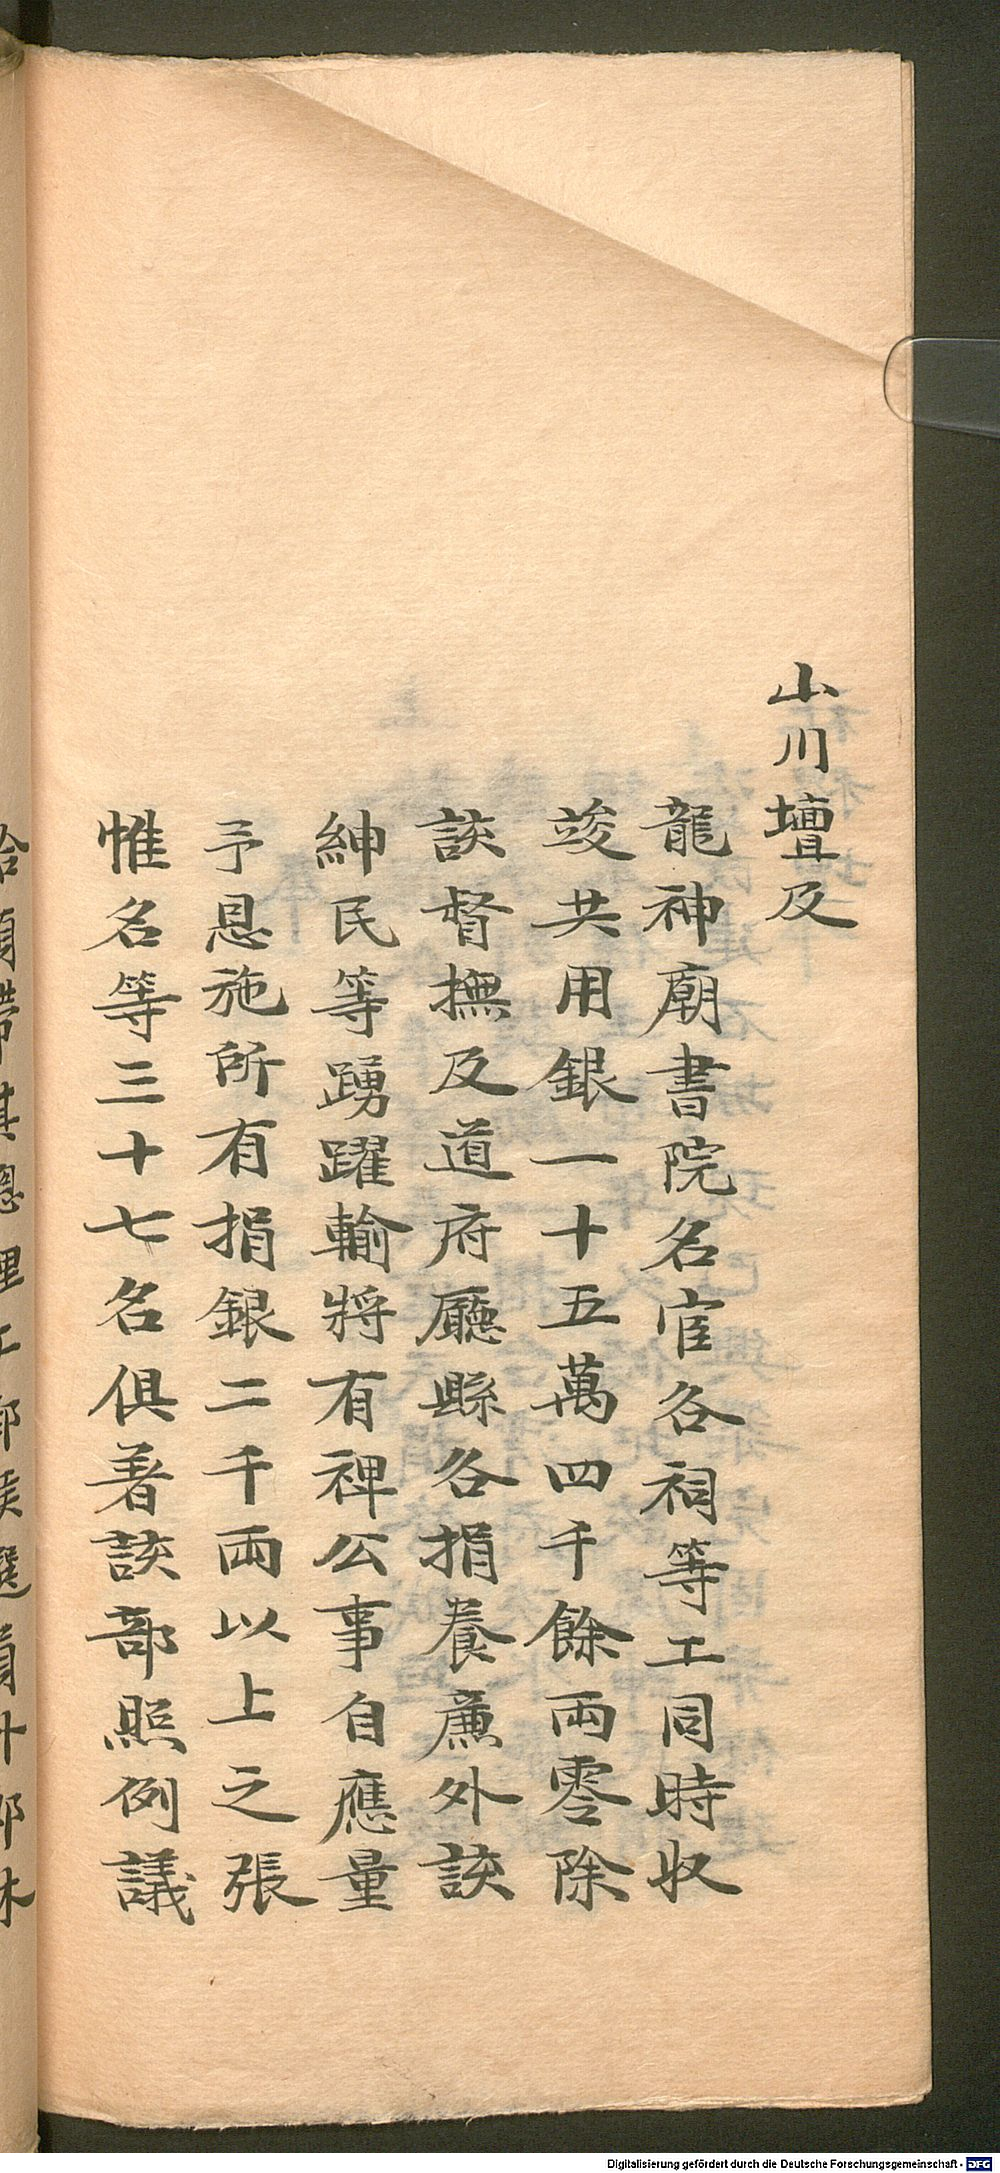 山川壇及
龍神廟書院名宦各祠等工同時收
竣共用銀一十五萬四千餘兩零除
該督撫及道府廳縣各捐養廉外該
紳民等踴躍輸將有裨公事自應量
予恩施所有捐銀二千兩以上之張
惟名等三十七名俱著該部照例議
Digitalisierung gefördert durch die Deutsche Forschungsgemeinschaft - DFG